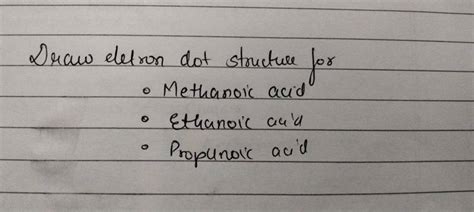 Draw eletron dot structure for
• Methanoic acid
• Ethanoic acid
• Propunoic acid